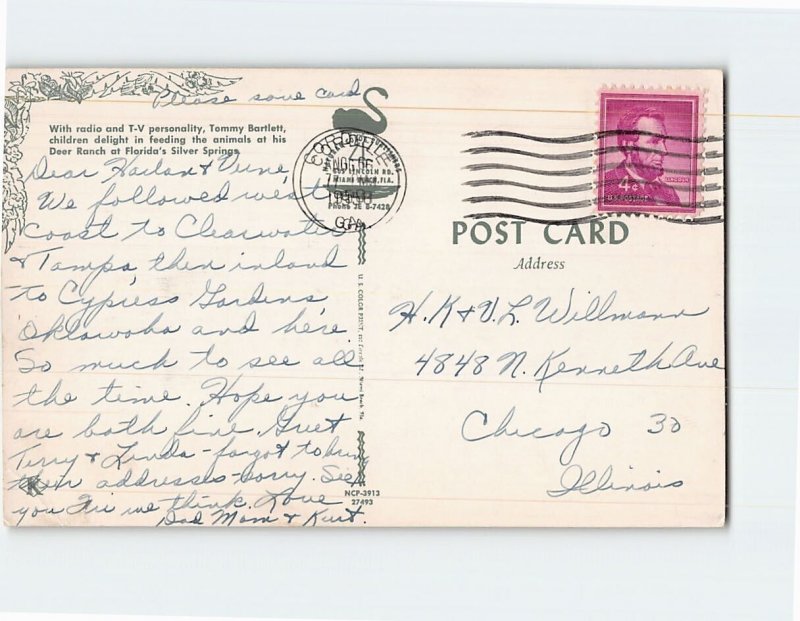 Please save card
With radio and T-V personality, Tommy Bartlett,
children delight in feeding the animals at his
Deer Ranch at Florida's Silver Springs.
Dear Harlan & Verne,
We followed west
coast to Clearwater
& Tampa, then inland
to Cypress Gardens,
Oklawaha and here.
So much to see all
the time. Hope you
are both fine. Greet
Terry & Linda - forgot to bring
their addresses - sorry. See
you Fri we think. Love
Dad Mom & Kurt.
LINCOLN RD.
MIAMI BEACH, FLA.
PHONE JE 8-7428
CORDELE
GA.
4¢
POST CARD
Address
H. K & V. L. Willmann
4848 N. Kenneth Ave
Chicago 30
Illinois
U. S. COLOR PRINT, Miami Beach, Fla.
K
NCP-3913
27493